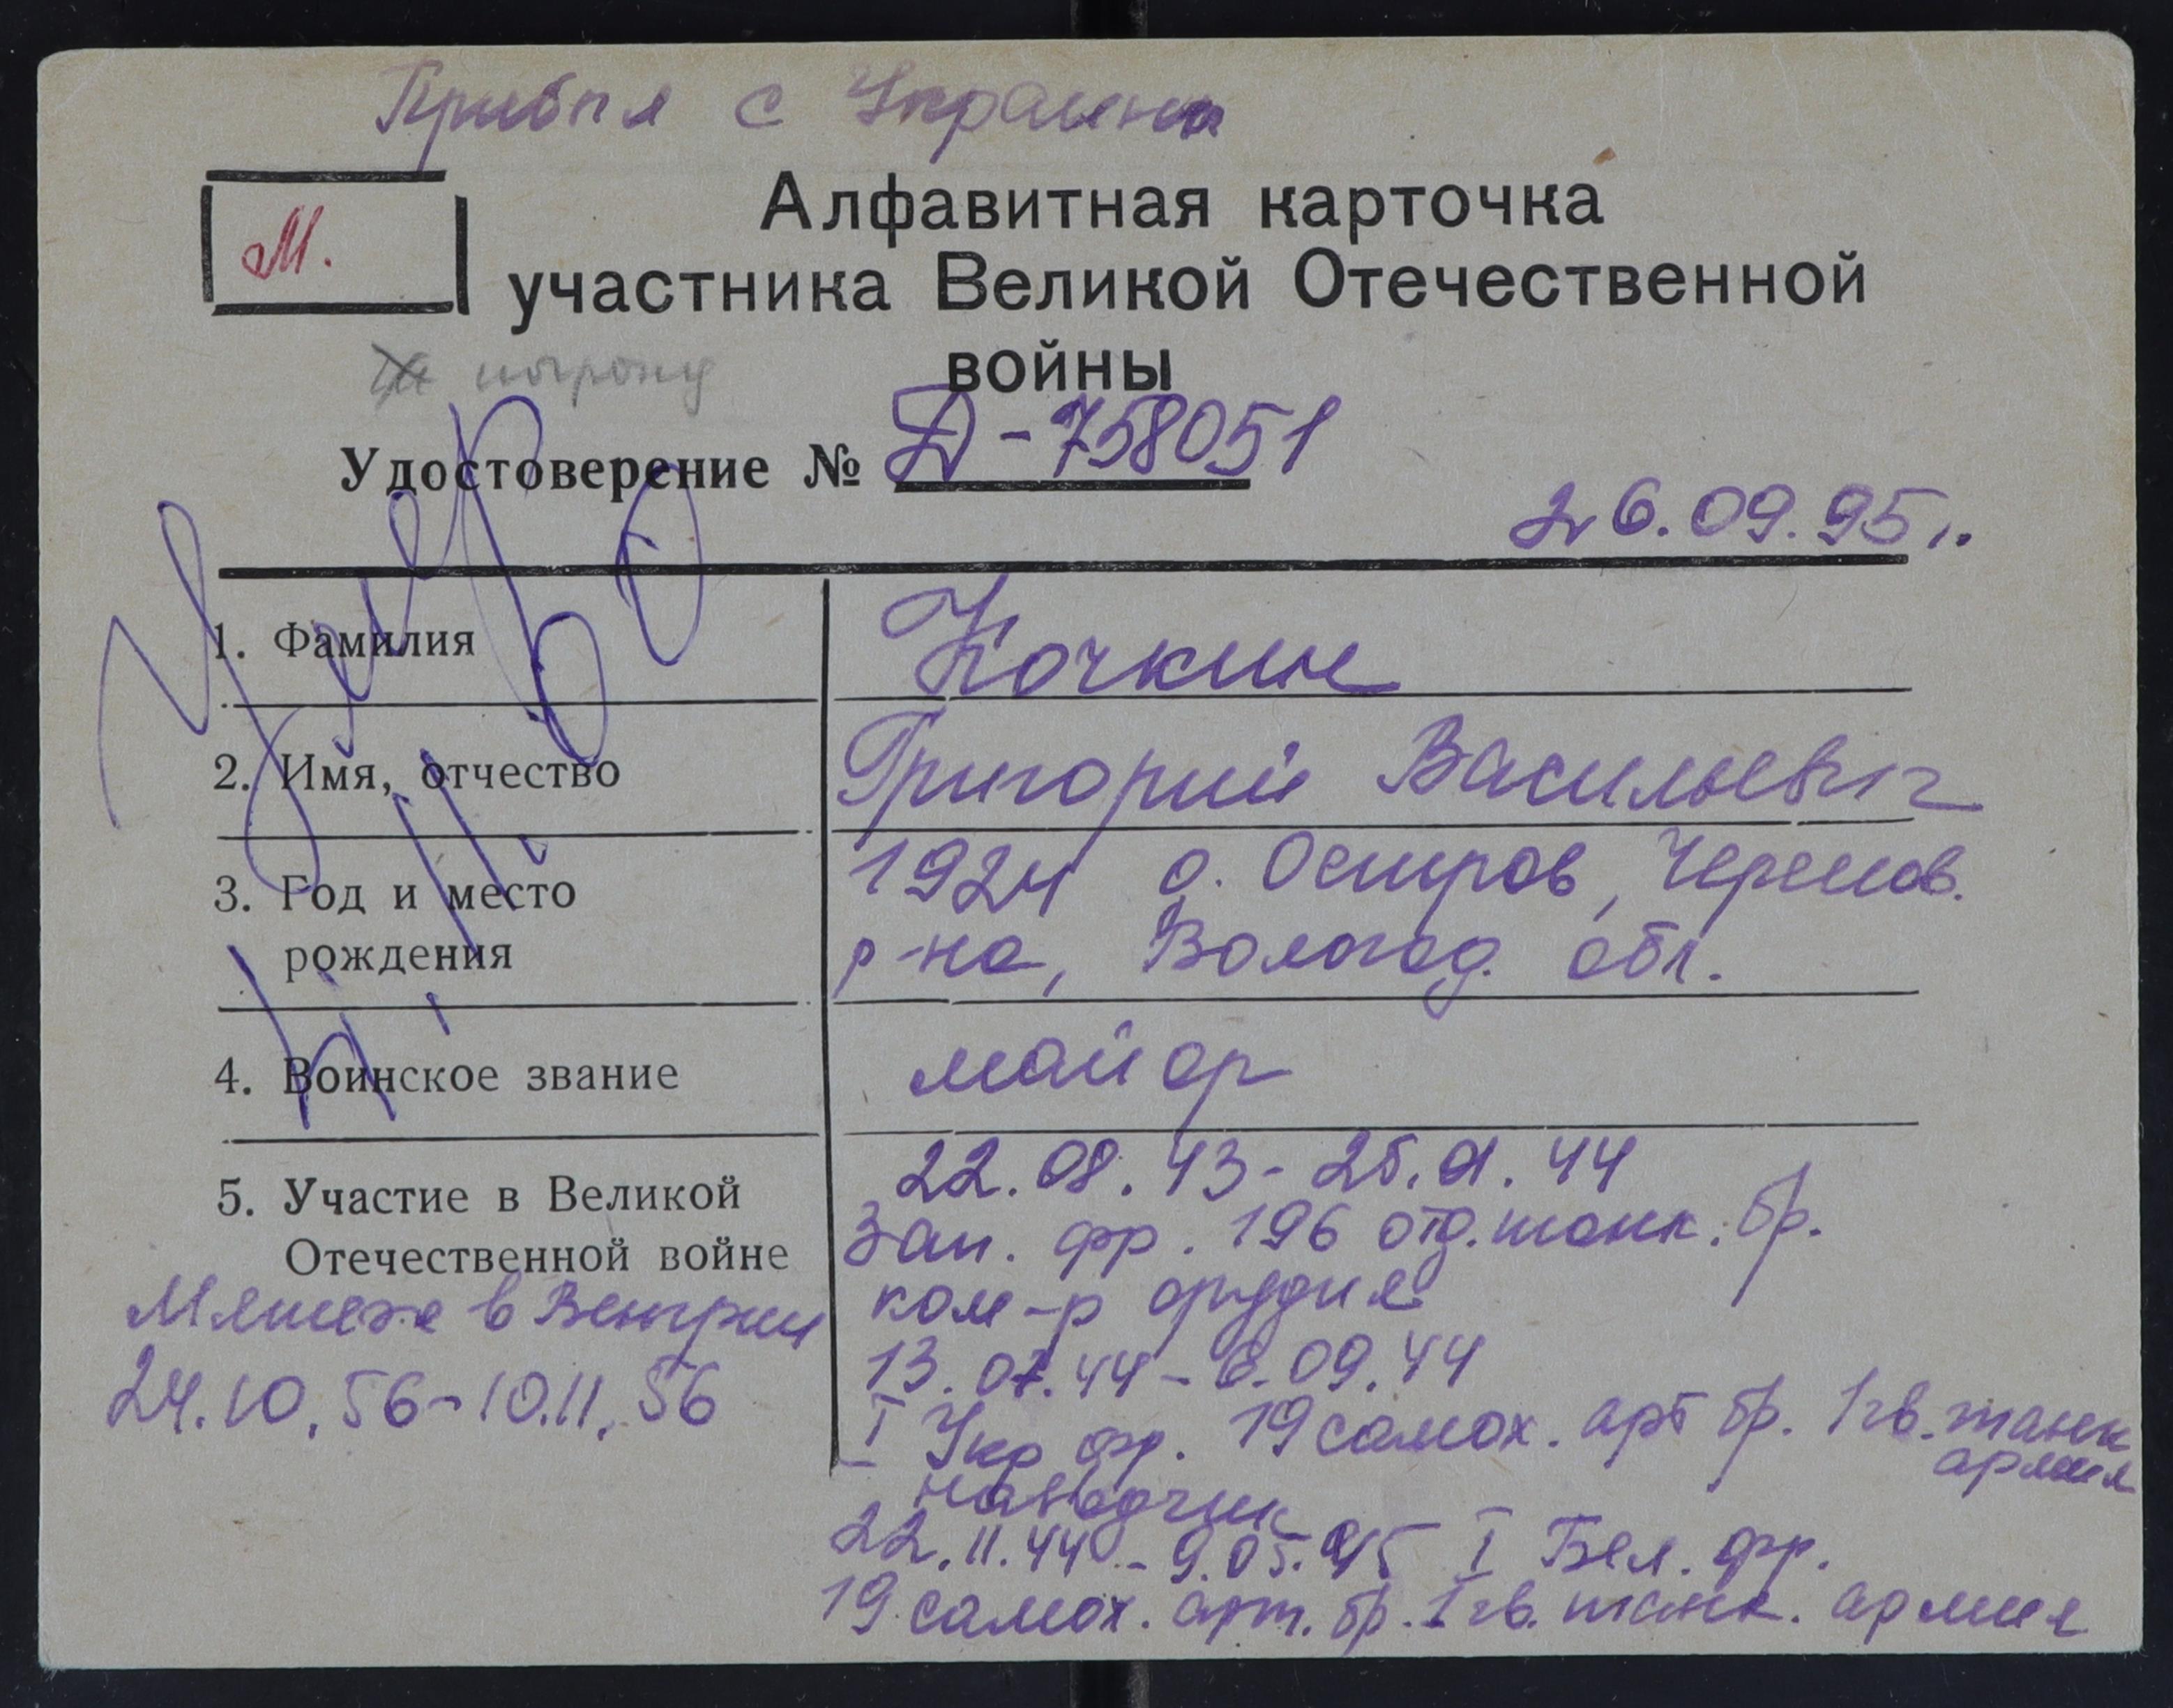 Прибыл с Украины
М.
Алфавитная карточка
участника Великой Отечественной
войны
Удостоверение № Д-758051
26.09.95г.
1. Фамилия Кочкин
2. Имя, отчество Григорий Васильевич
3. Год и место 1924 о. Остров, Черепов.
рождения р-на, Вологод. обл.
4. Воинское звание майор
5. Участие в Великой 22.08.43 - 25.01.44
Отечественной войне Зап. фр. 196 отд. танк. бр.
Мятеж в Венгрии ком-р орудия
24.10.56-10.11.56 13.07.44 - 6.09.44
I Укр фр. 19 самох. арт бр. 1 гв. танк
армия
наводчик
22.11.44 - 9.05.45 I Бел. фр.
19 самох. арт. бр. 1 гв. танк. армия